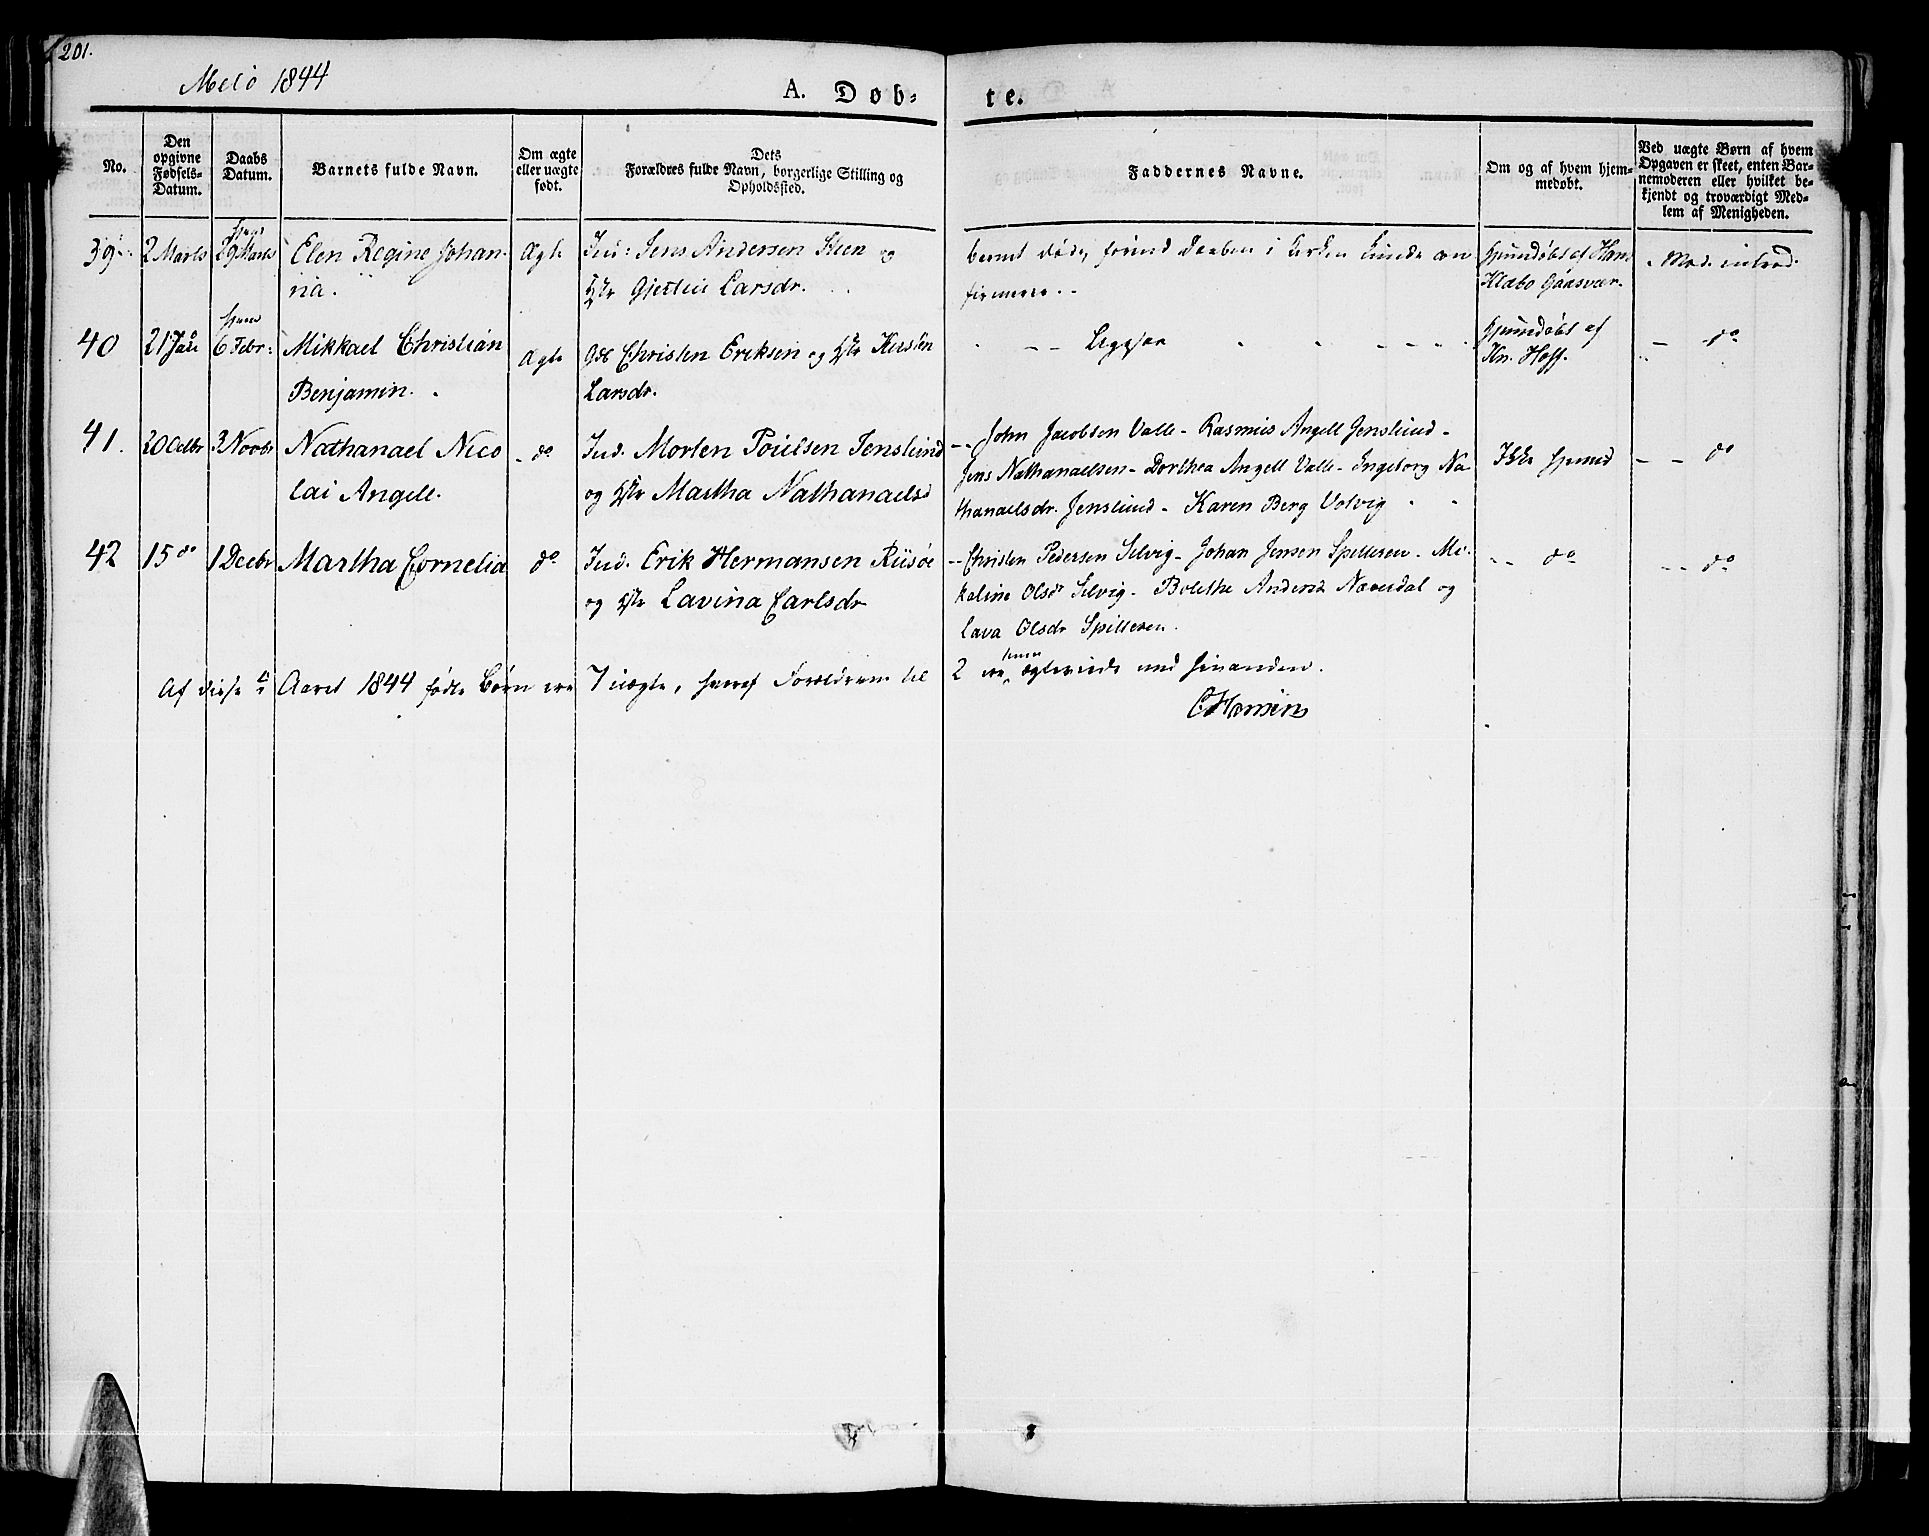 201.
Melö 1844
A. Døb-
te.
No.
Den opgivne Fødsels-Datum.
Daabs Datum.
Barnets fulde Navn.
Om ægte eller uægte født.
Dets Forældres fulde Navn, borgerlige Stilling og Opholdssted.
Faddernes Navne.
Om og af hvem hjem-
medøbt.
Ved uægte Børn af hvem
Opgaven er skeet, enten Bar-
nemoderen eller hvilket be-
kjendt og troværdigt Med-
lem af Menigheden.
39 2 Marts hjem 29 Marts Elen Regine Johan- Ægte Ind: Jens Andersen Steen og
na. Hst Gjertrue Larsdr.
Barnet døde, forind Daaben i Kirken kunde con
firmeres.
Hjemdøbt af Hans
Klæbo Gaasvær.
Mod. introd.
40 21 Jan hjem 6 Febr: Mikkael Christian Ægte Gdb Christen Eriksen og Hst Kirsten
Benjamin. Larsdr.
Ligesaa
Hjemdøbt af
Kn. Hoff.
do
41. 20 Octbr 3 Novbr Nathanael Nico do Ind. Morten Poulsen Jenslund
lai Angell. og Hst Martha Nathanaelsd
John Jacobsen Valle - Rasmus Angell Jenslund -
Jens Nathanaelsen - Dorthea Angell Valle - Ingeborg Na-
thanaelsdr. Jenslund - Karen Berg Valvig
Ikke hjemmed
do
42 15 do 1 Decbr Martha Cornelia do Ind. Erik Hermansen Riisöe
og Hst Lavina Carlsdr
Christen Pedersen Selvig - Johan Jensen Spilleren - Mi-
kaline Olsdr Selvig - Bolethe Andersd Næverdal og
Lava Olsdr Spilleren.
do
do
Af disse i Aaret 1844 fødte Børn ere 7 uægte, hvoraf Forældrene til 2 ere senere ægteviede med hinanden.
C Hansen